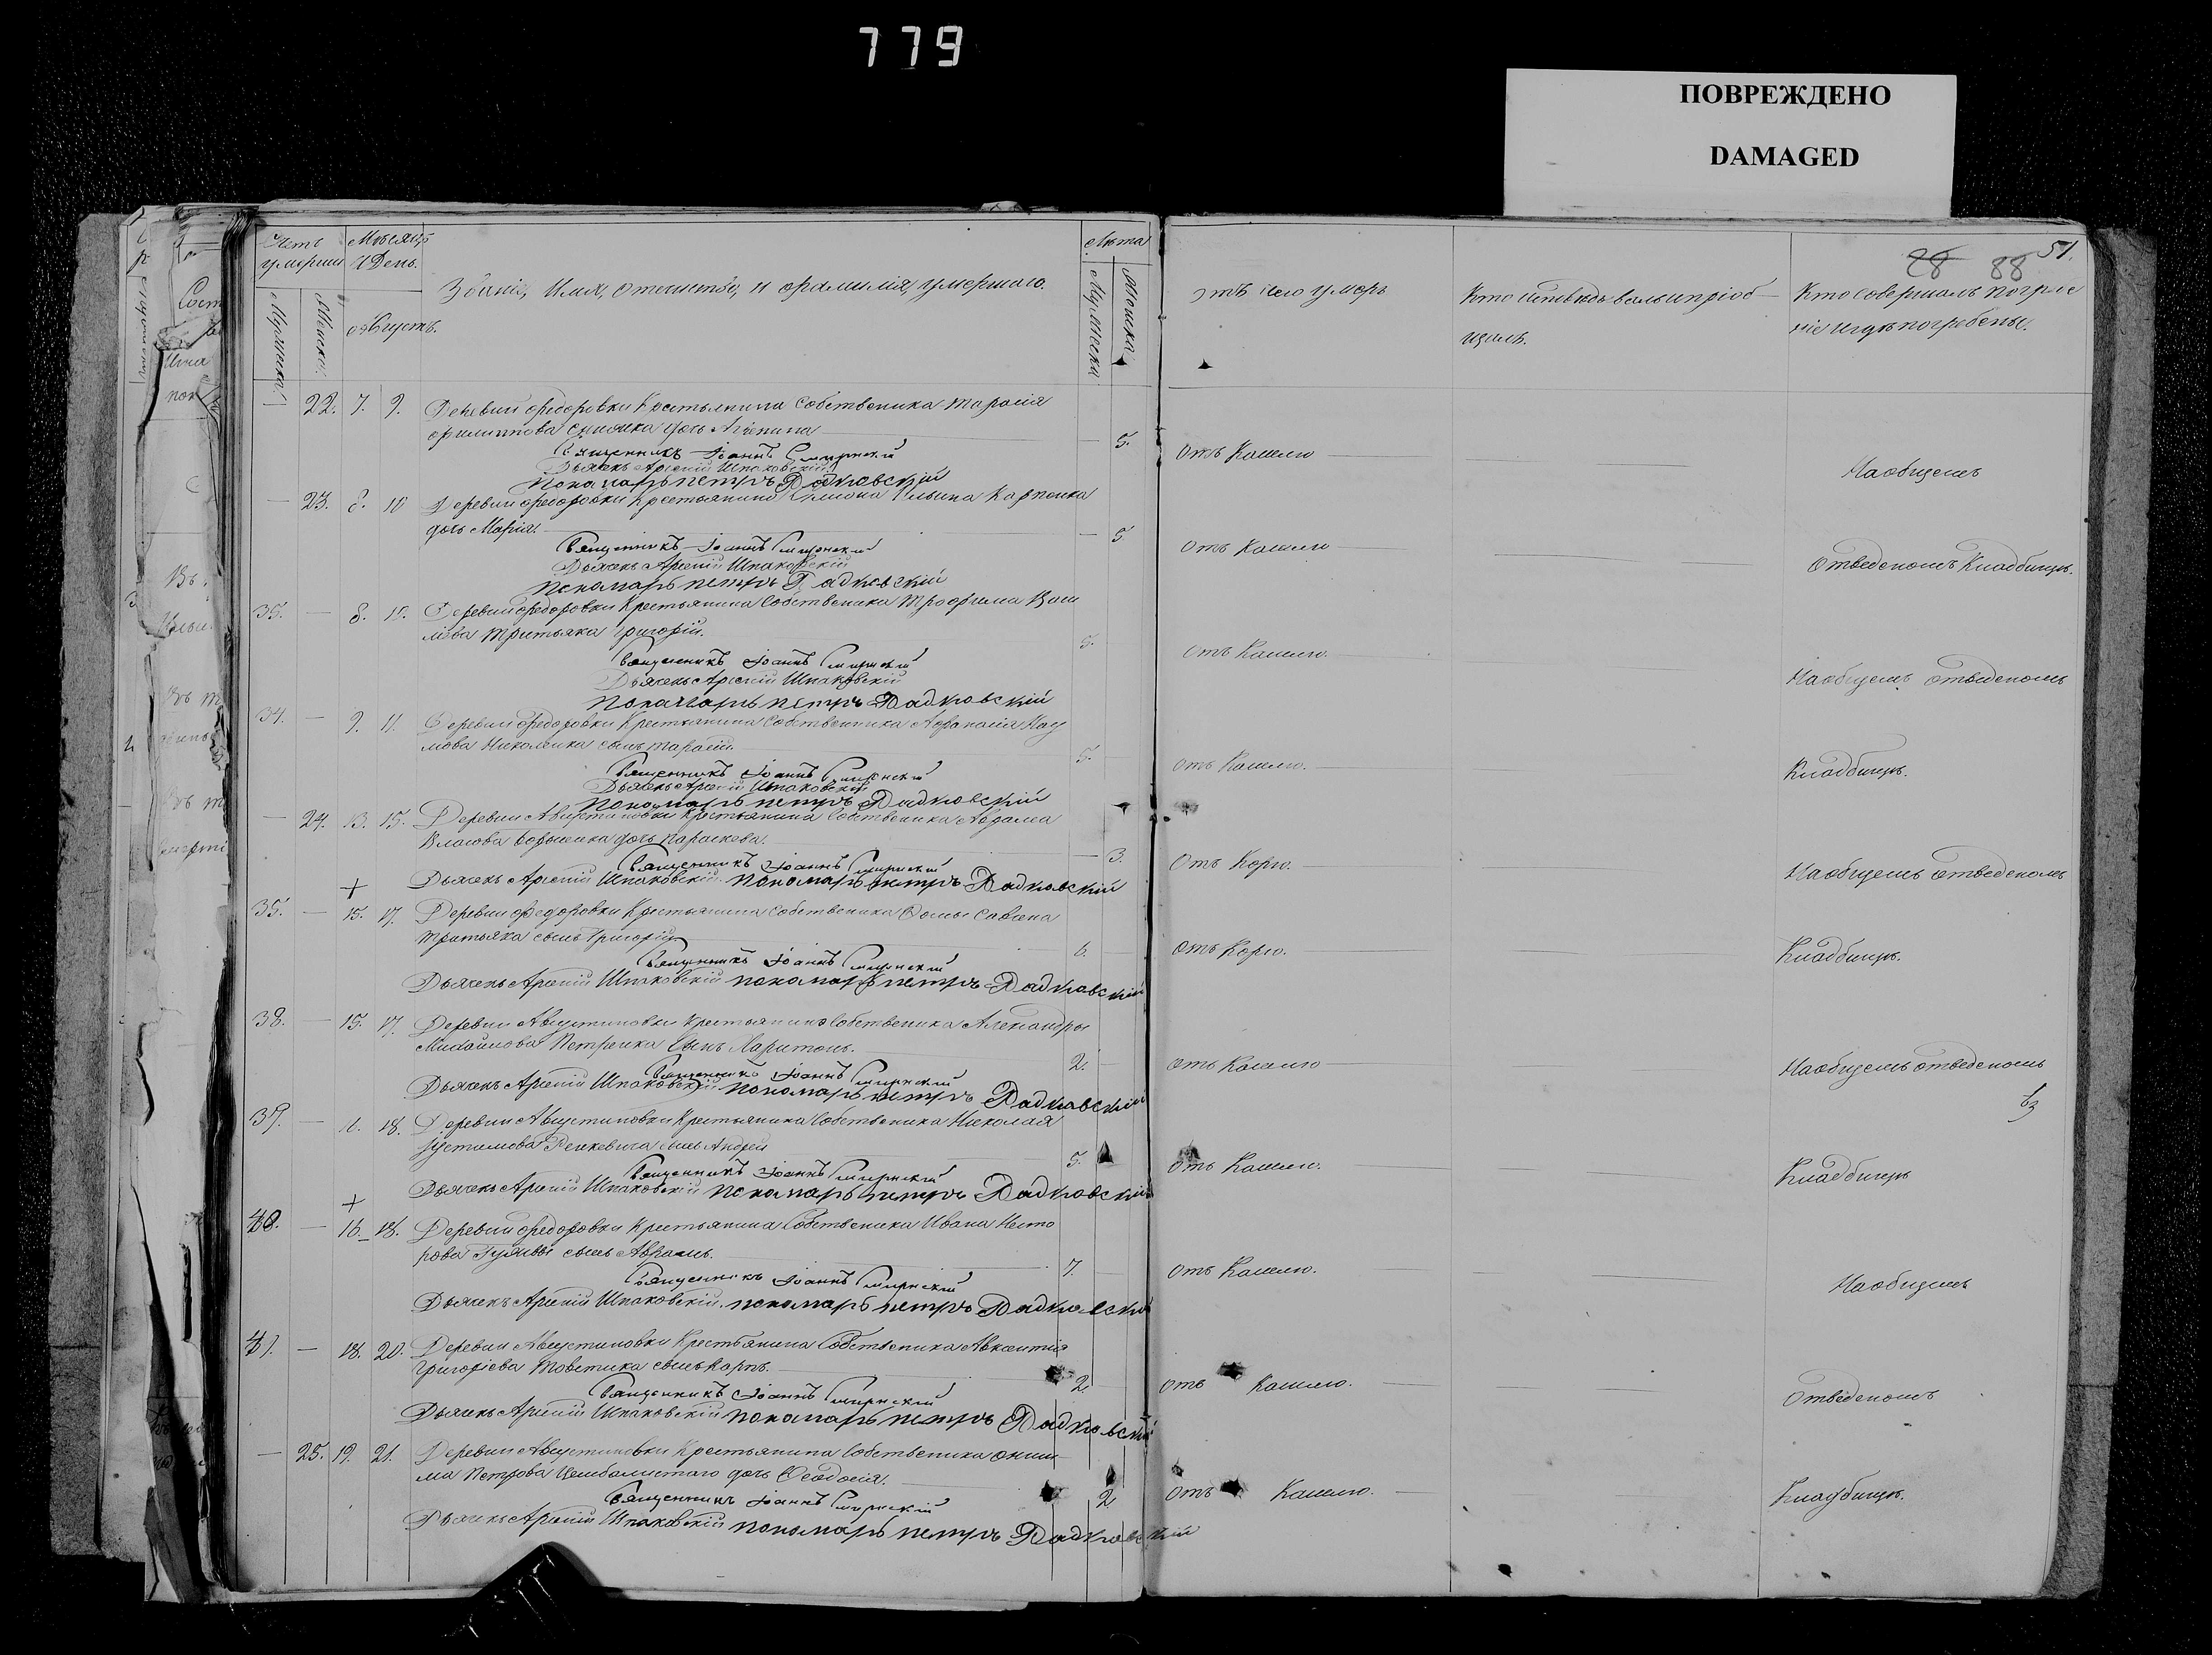 779
ПОВРЕЖДЕНО
DAMAGED
28 88 51.
Счетъ умершихъ
Мужеска.
Женска.
Мѣсяцъ и День.
Августъ.
Званіе, Имя, отчество, и фамилія, умершаго.
Лѣта
Мужеска
Женска
Отъ чего умеръ
Кто исповѣдывалъ и пріоб
щилъ.
Кто совершалъ погребе
ніе и гдѣ погребены.
— 22. 7. 9. Деревни Федоровки Крестьянина Собственика Тарасія
Филиппова дочь — 5. Отъ Кашлю
Священникъ Іоаннъ Смирнскій
Дьячекъ Арсеній Шпаковскій
Пономарь Петръ Радковскій
На общемъ
— 23. 8. 10 Деревни Федоровки Крестьянина Симона Ильина Карпенка
дочь Марія. — 5 Отъ Кашлю
Священникъ Іоаннъ Смирнскій
Дьячекъ Арсеній Шпаковскій
Пономарь Петръ Радковскій
Отведеномъ Кладбищѣ.
35. — 8. 10. Деревни Федоровки Крестьянина Собственика Трофима
Третьяка Григорій. 5. Отъ Кашлю.
Священникъ Іоаннъ Смирнскій
Дьячекъ Арсеній Шпаковскій
Пономарь Петръ Радковскій
На общемъ отведеномъ
34. — 9. 11. Деревни Федоровки Крестьянина Собственника Афанасія Нау
мова Николенка сынъ Тарасій. 5. Отъ Кашлю.
Священникъ Іоаннъ Смирнскій
Дьячекъ Арсеній Шпаковскій
Пономарь Петръ Радковскій
Кладбищѣ.
— 24. 13. 15. Деревни Августиновки Крестьянина Собственика Адама
Власова дочь Параскева. — 3. Отъ Корю.
Священникъ Іоаннъ Смирнскій
Дьячекъ Арсеній Шпаковскій. Пономарь Петръ Радковскій
На общемъ отведеномъ
+
35. — 15. 17. Деревни Федоровки Крестьянина Собственика Фомы Савина
Третьяка сынъ Григорій 6. Отъ Корю.
Священникъ Іоаннъ Смирнскій
Дьячекъ Арсеній Шпаковскій пономарь Петръ Радковскій
Кладбищѣ.
38. — 15. 17. Деревни Августиновки Крестьянина Собственика Александры
Михайлова Петренка Сынъ Харитонъ. 2. Отъ Кашлю
Священникъ Іоаннъ Смирнскій
Дьячекъ Арсеній Шпаковскій Пономарь Петръ Радковскій
На общемъ отведеномъ
39. — 16. 18. Деревни Августиновки Крестьянина Собственика Николая
Устимова сынъ Андрей 5. Отъ Кашлю.
Священникъ Іоаннъ Смирнскій
Дьячекъ Арсеній Шпаковскій пономарь Петръ Радковскій
Кладбищѣ
+
40. — 16. 18. Деревни Федоровки Крестьянина Собственика Ивана Несто
рова сынъ Авраамъ. 7. Отъ Кашлю.
Священникъ Іоаннъ Смирнскій
Дьячекъ Арсеній Шпаковскій. пономарь Петръ Радковскій
На общемъ
41. — 18. 20. Деревни Августиновки Крестьянина Собственика Авксентія
Григоріева сынъ Карпъ. 2. Отъ Кашлю.
Священникъ Іоаннъ Смирнскій
Дьячекъ Арсеній Шпаковскій пономарь Петръ Радковскій
Отведеномъ
— 25. 19. 21. Деревни Августиновки Крестьянина Собственика Ониси
ма Петрова Цимбалистаго дочь Феодосія. 2 Отъ Кашлю.
Священникъ Іоаннъ Смирнскій
Дьячекъ Арсеній Шпаковскій пономарь Петръ Радковскій
Кладбищѣ.